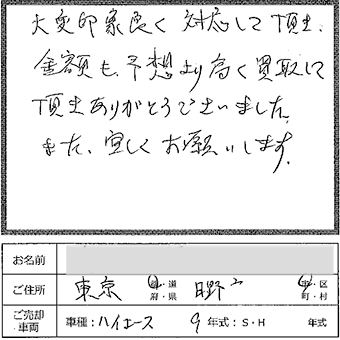 大変印象良く対応して頂き、
金額も、予想より高く買取して
頂きありがとうございました。
また、宜しくお願いします。
お名前
ご住所 東京 都・道 府・県 日野 市・区 町・村
ご売却 車両 車種：ハイエース 9 年式：S・H 年式